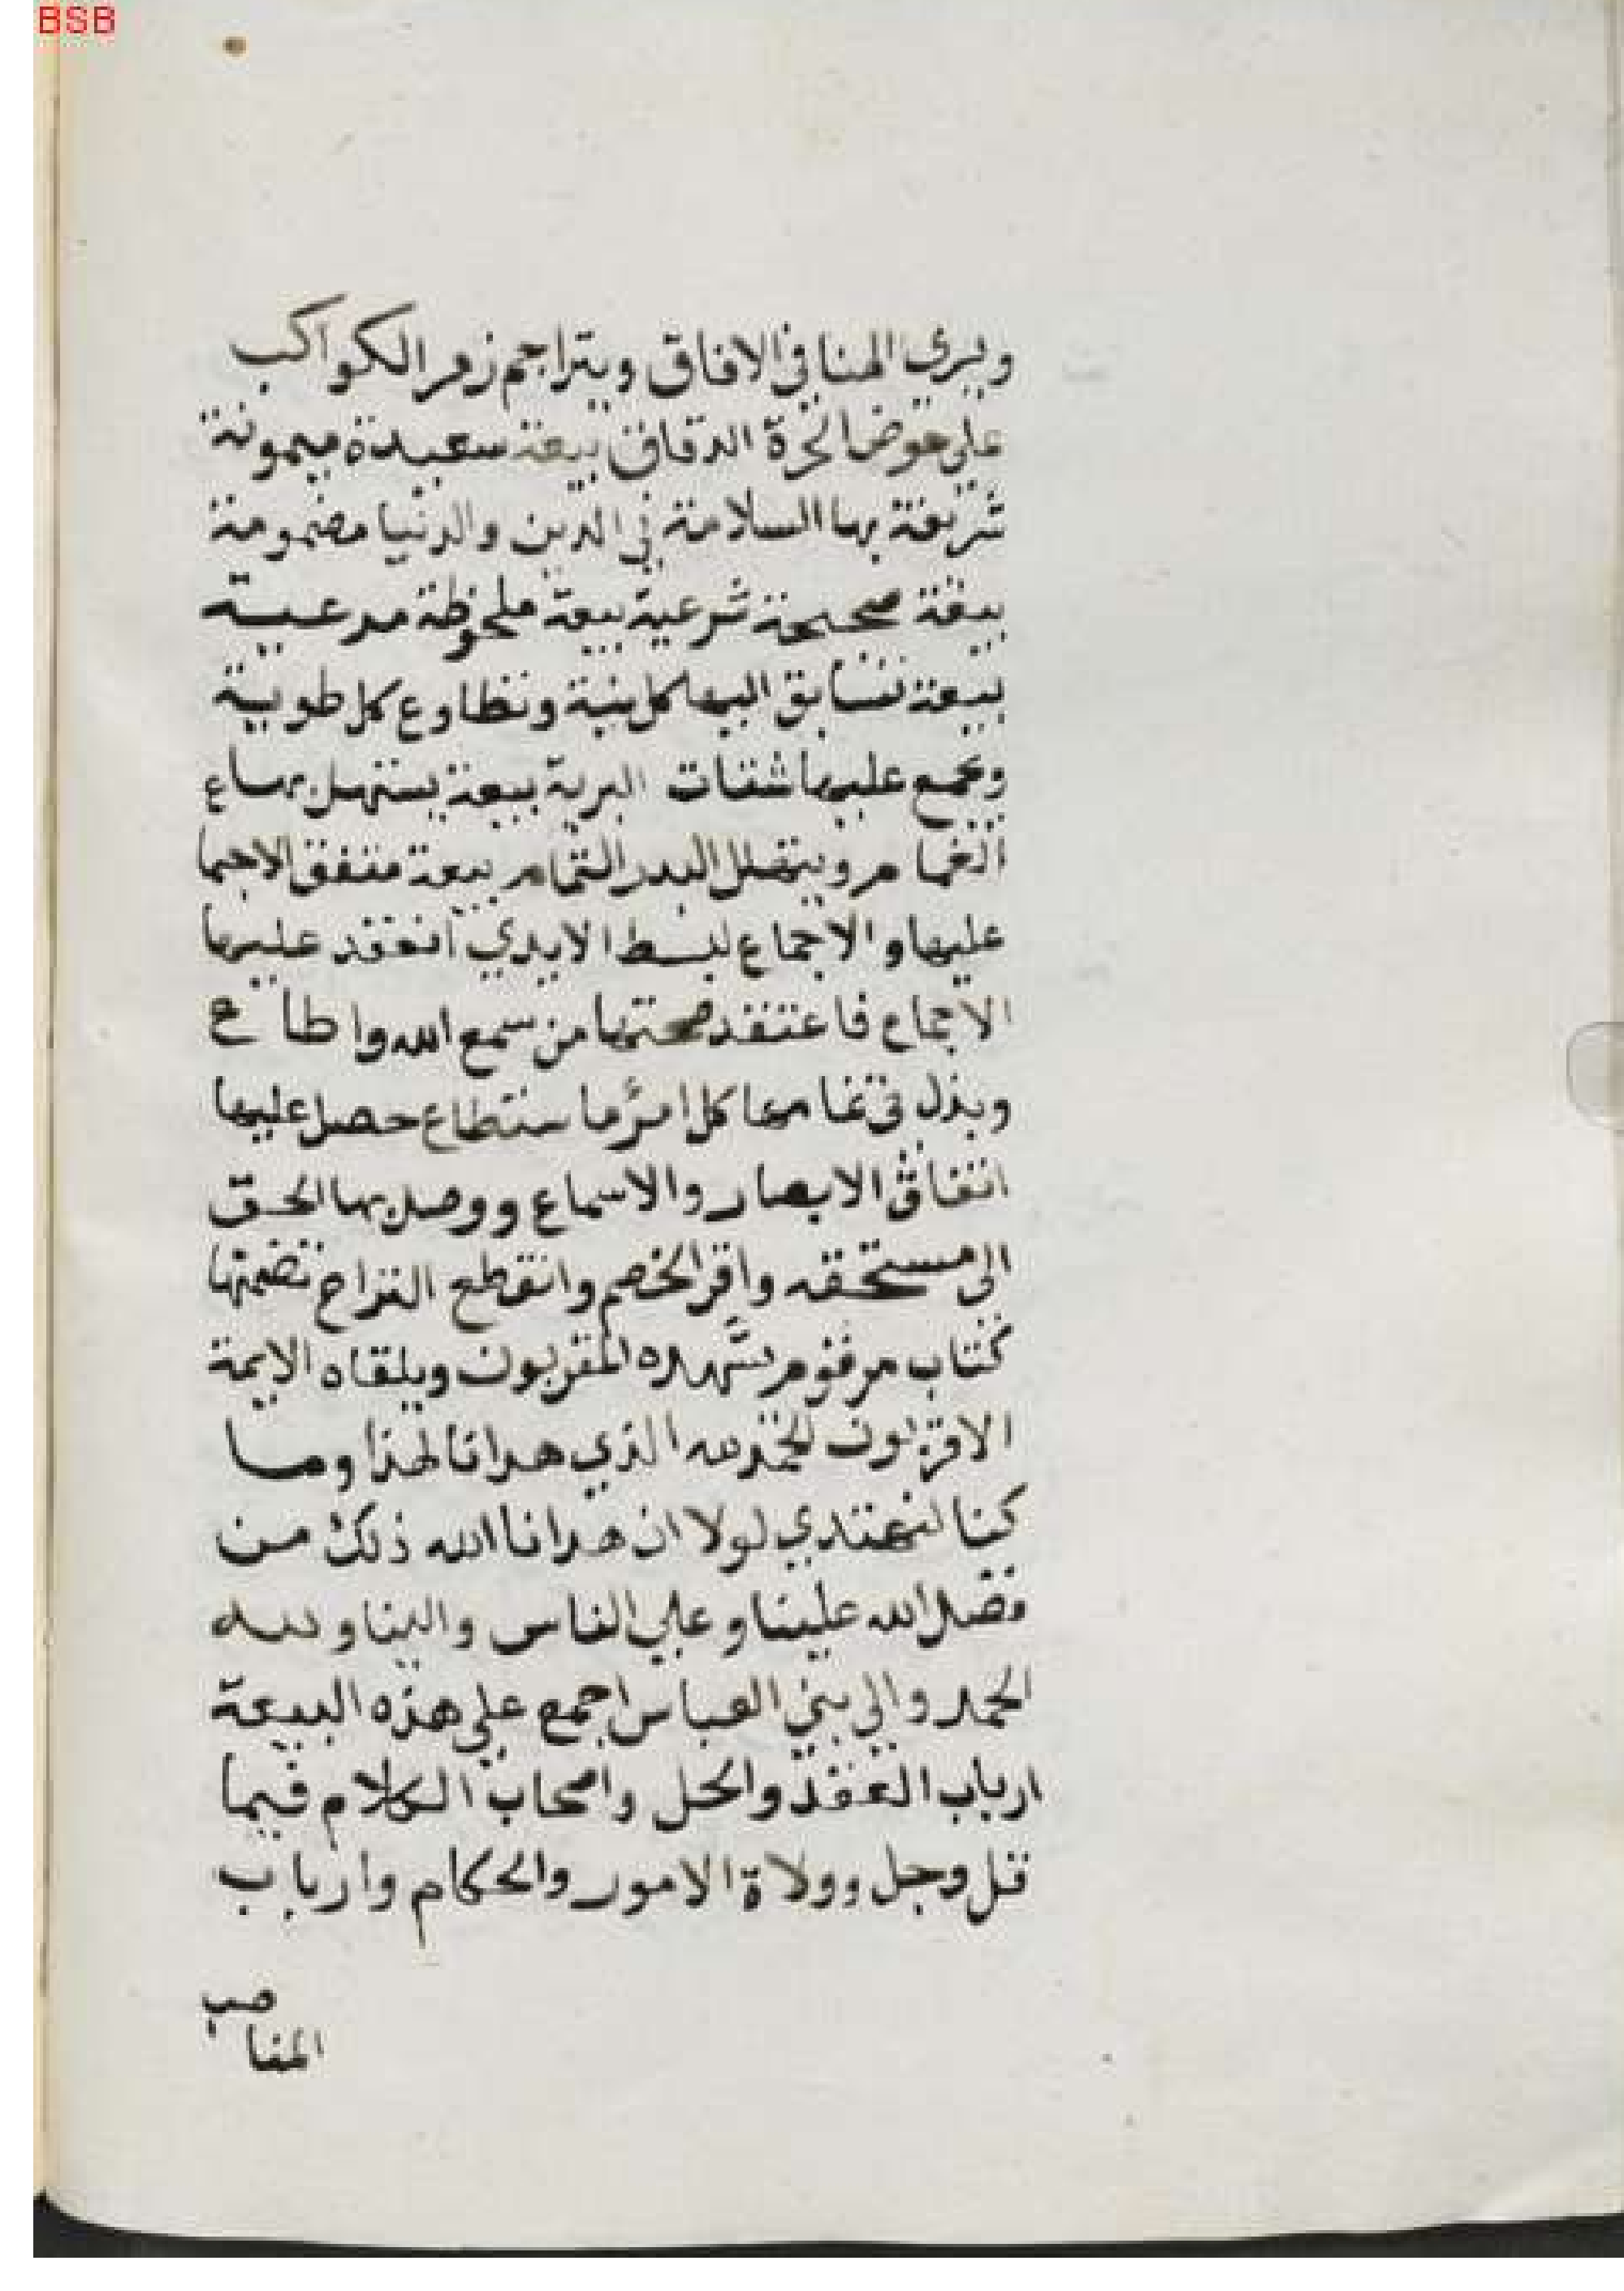 BSB
ويري الهنا في الافاق ويتزاحم زهر الكواكب
علي حوض المجرة الدقاق بيعة سعيدة ميمونة
شريفة بها السلامة في الدين والدنيا مضمومنة
بيعة صحيحة شرعية بيعة ملحوظة مرعية
بيعة تتسابق اليها كل بنية وتطاوع كل طويية
وتجمع عليها شتات البرية بيعة يستهل بها ع
الغما مر ويتهلل البدر التمام بيعة متفق الاجما
عليها والاجماع لبسط الايدي انعقد عليها
الاجماع فاعتقد صحتها من سمع الله واطاع
وبذل في تمامها كل امرئ ما ستطاع حصل عليها
اتفاق الابصار والاسماع ووصل بها الحق
الى مستحقه واقر الخصم وانقطع النزاع تضمنها
كتاب مرقوم يشهده المقربون ويلقاه الايمة
الاقربون الحمد لله الذي هدانا لهذا وما
كنا لنهتدي لولا ان هدانا الله ذلك من
فضل الله علينا وعلي الناس والينا ولله
الحمد والي بني العباس اجمع علي هذه البيعة
ارباب العقد والحل واصحاب الكلام فيما
قل وجل وولاة الامور والحكام وارباب
المناصب